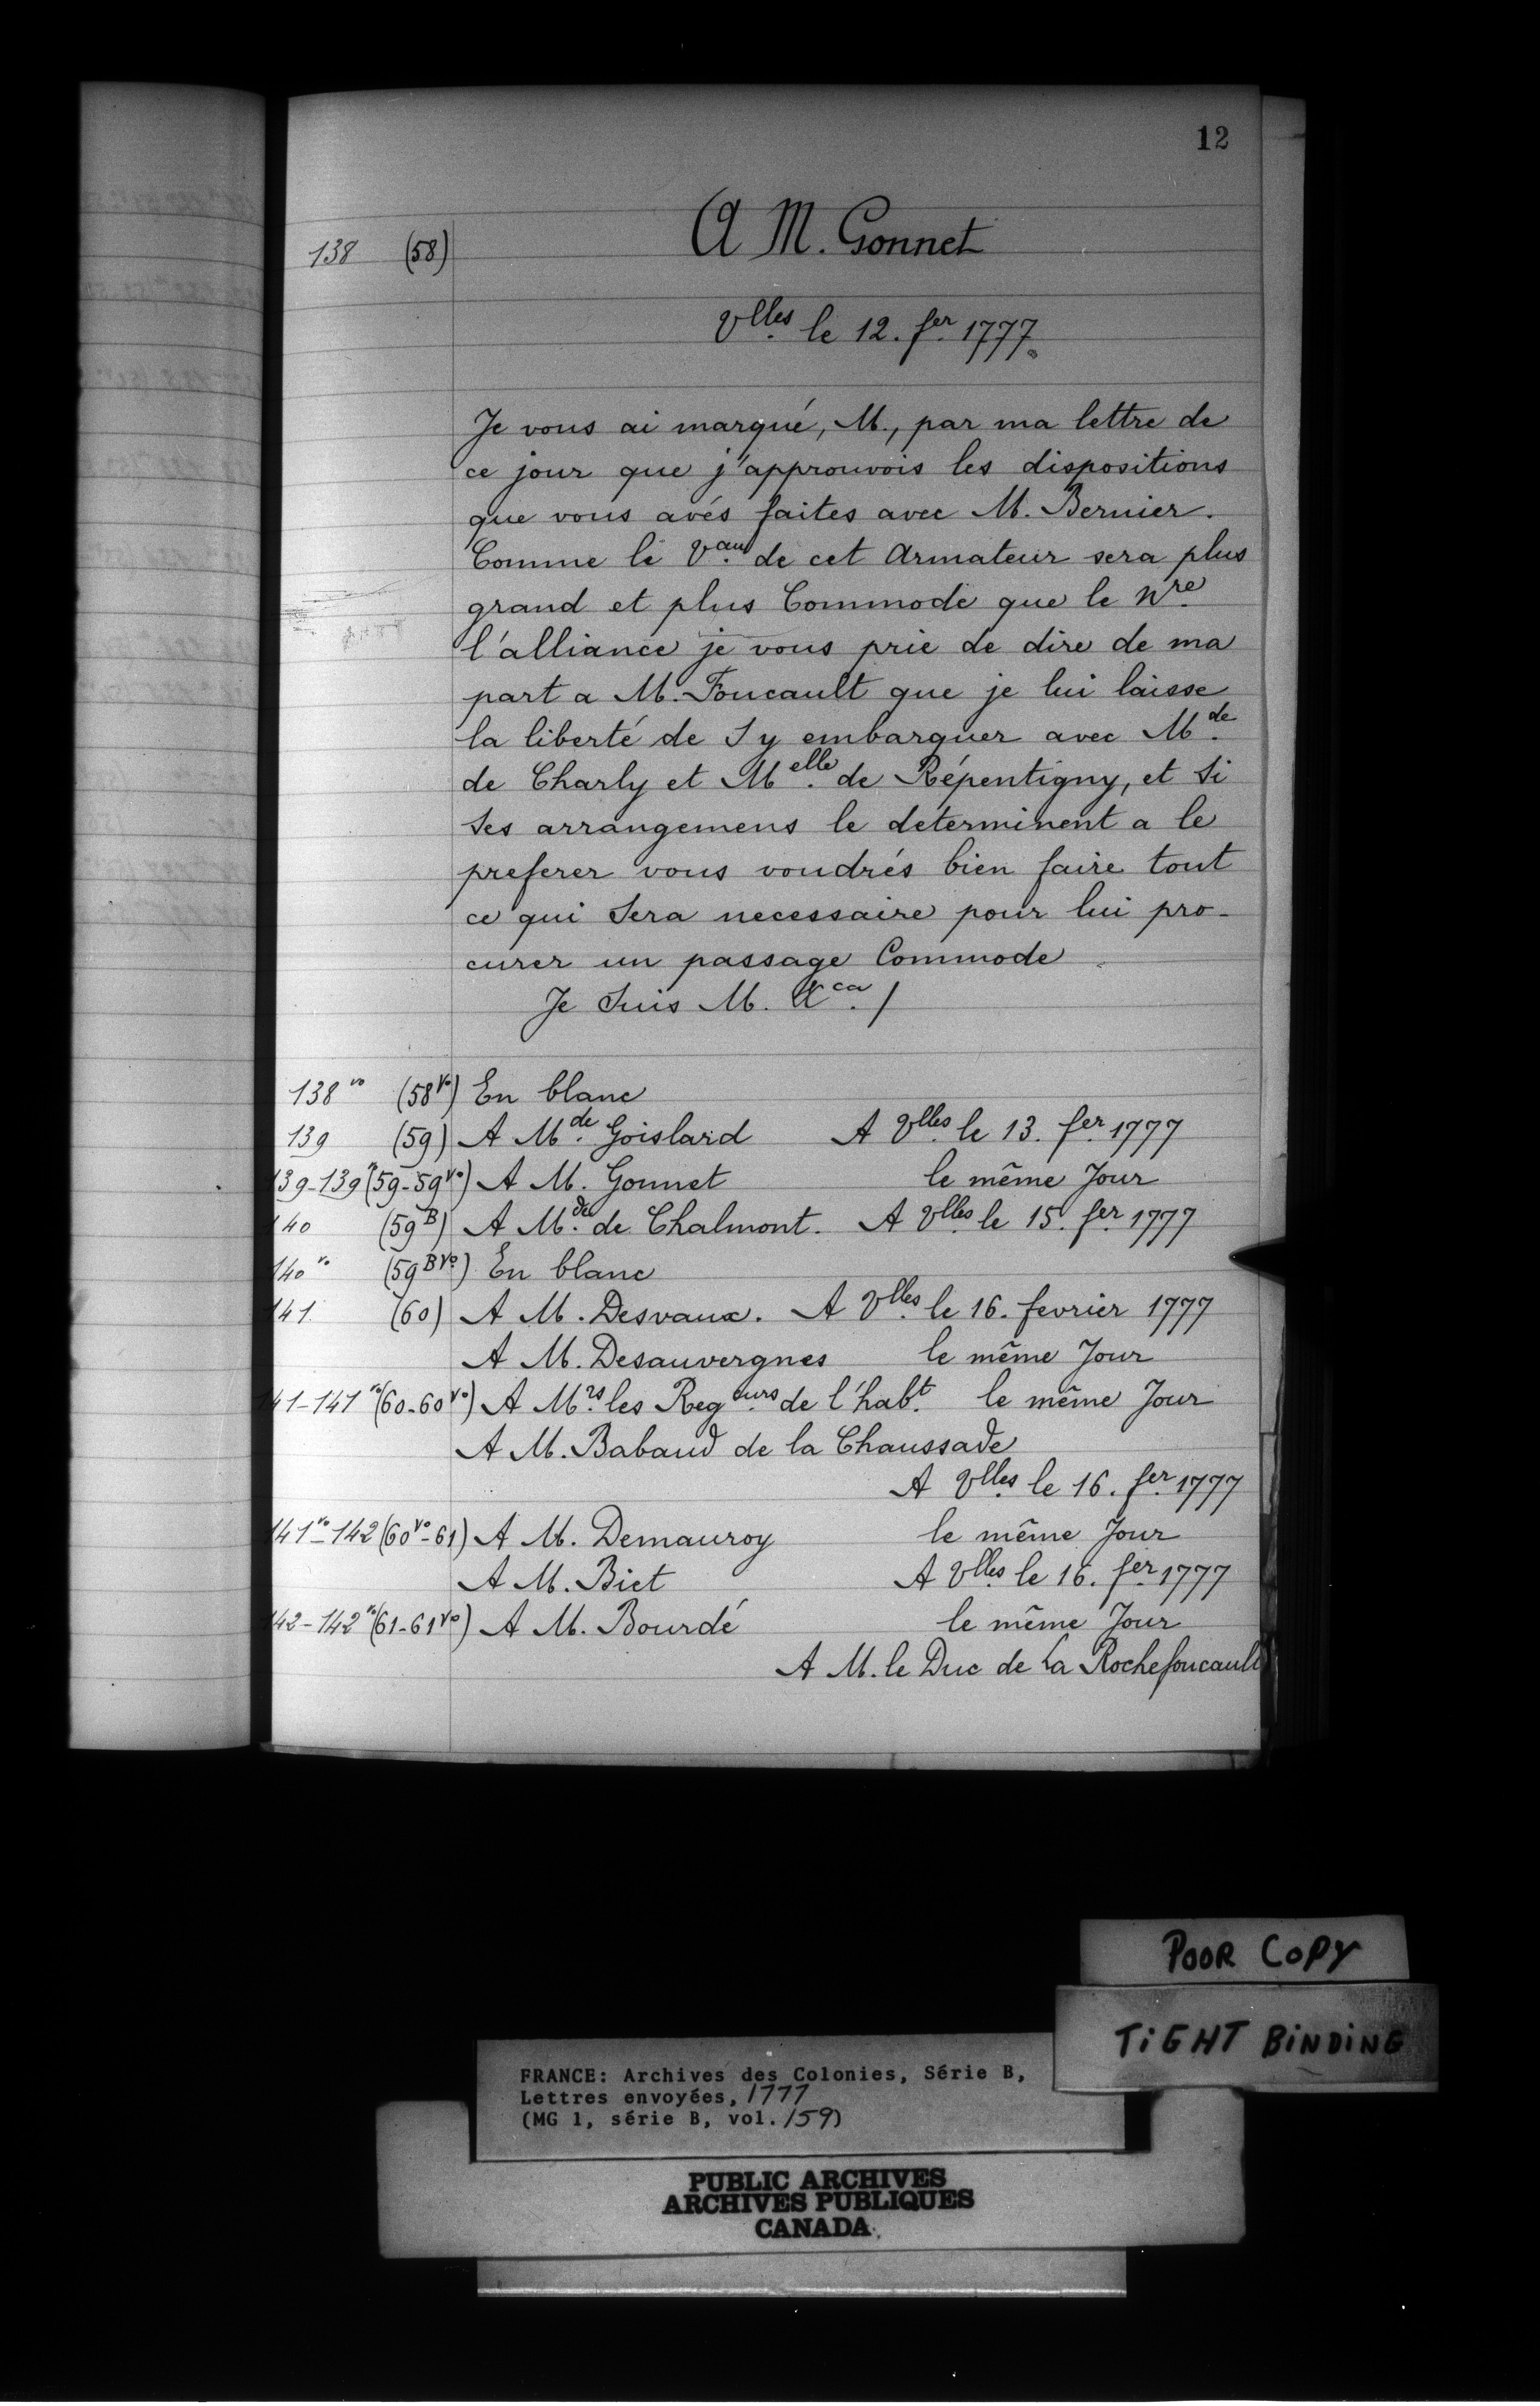 12
138 (58) A M. Gonnet
Vlles le 12. fer 1777.
Je vous ai marqué, M., par ma lettre de
ce jour que j'approuvois les dispositions
que vous avés faites avec M. Bernier.
Comme le Vau de cet Armateur sera plus
grand et plus Commode que le Nre
l'alliance je vous prie de dire de ma
part a M. Foucault que je lui laisse
la liberté de Sy embarquer avec Mde
de Charly et Melle de Répentigny, et Si
Ses arrangemens le déterminent a le
preferer vous voudrés bien faire tout
ce qui Sera necessaire pour lui pro-
curer un passage Commode
Je Suis M. &ca. /
138 vo (58 vo) En blanc
139 (59) A Mde Goislard A Vlles le 13. fer 1777
139-139 vo (59-59 vo) A M. Gonnet le même Jour
140 (59 B) A Mde de Chalmont. A Vlles le 15. fer 1777
140 vo (59 B vo) En blanc
141 (60) A M. Desvaux. A Vlles le 16. fevrier 1777
A M. Desauvergnes le même Jour
141-141 vo (60-60 vo) A Mrs les Regeurs de l'habt. le même Jour
A M. Babaud de la Chaussade
A Vlles le 16. fer 1777
141 vo-142 (60 vo-61) A M. Demauroy le même Jour
A M. Biet A Vlles le 16. fer 1777
142-142 vo (61-61 vo) A M. Bourdé le même Jour
A M. le Duc de La Rochefoucault
POOR COPY
TiGHT BiNDiNG
FRANCE: Archives des Colonies, Série B,
Lettres envoyées, 1777
(MG 1, série B, vol. 159)
PUBLIC ARCHIVES
ARCHIVES PUBLIQUES
CANADA